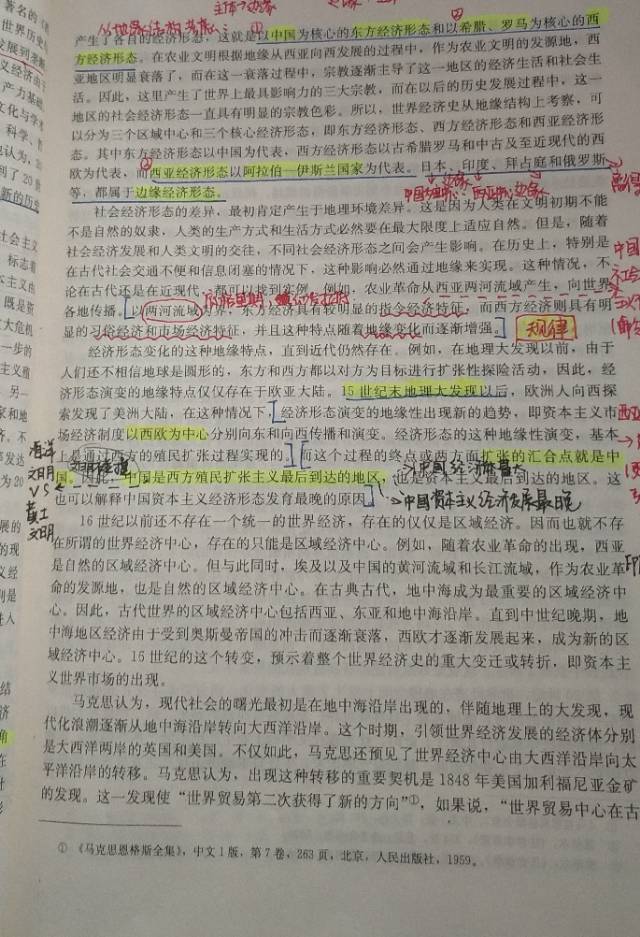 主体→边缘
从地缘结构考察：①
②
产生了各自的经济形态，这就是以中国为核心的东方经济形态和以希腊、罗马为核心的西
方经济形态。在农业文明根据地缘从西亚向西发展的过程中，作为农业文明的发源地，西
亚地区明显衰落了，而在这一衰落过程中，宗教逐渐主导了这一地区的经济生活和社会生
活。因此，这里产生了世界上最具影响力的三大宗教，而在以后的历史发展过程中，这一
地区的社会经济形态一直具有明显的宗教色彩。所以，世界经济史从地缘结构上考察，可
以分为三个区域中心和三个核心经济形态，即东方经济形态、西方经济形态和西亚经济形
态。其中东方经济形态以中国为代表，西方经济形态以古希腊罗马和中古及至近现代的西
欧为代表，而西亚经济形态以阿拉伯—伊斯兰国家为代表。日本、印度、拜占庭和俄罗斯
等，都属于边缘经济形态。
社会经济形态的差异，最初肯定产生于地理环境差异。这是因为人类在文明初期不能
不是自然的奴隶，人类的生产方式和生活方式必然要在最大限度上适应自然。但是，随着
社会经济发展和人类文明的交往，不同社会经济形态之间会产生影响。在历史上，特别是
在古代社会交通不便和信息闭塞的情况下，这种影响必然通过地缘来实现。这种情况，不
论在古代还是在近现代，都可以找到实例。例如，农业革命从西亚两河流域产生，向世界
各地传播。以两河流域为界，东方经济具有较明显的指令经济特征，而西方经济则具有明
显的习俗经济和市场经济特征，并且这种特点随着地缘变化而逐渐增强。
规律
经济形态变化的这种地缘特点，直到近代仍然存在。例如，在地理大发现以前，由于
人们还不相信地球是圆形的，东方和西方都以对方为目标进行扩张性探险活动，因此，经
济形态演变的地缘特点仅仅存在于欧亚大陆。15 世纪末地理大发现以后，欧洲人向西探
索发现了美洲大陆，在这种情况下，经济形态演变的地缘性出现新的趋势，即资本主义市
场经济制度以西欧为中心分别向东和向西传播和演变。经济形态的这种地缘性演变，基本
上是通过西方的殖民扩张过程实现的。而这个过程的终点或两方面扩张的汇合点就是中
国。因此，中国是西方殖民扩张主义最后到达的地区，也是资本主义最后到达的地区。这
也可以解释中国资本主义经济形态发育最晚的原因。
海洋
文明
VS
黄土
文明
→中国资本主义经济发展最晚
16 世纪以前还不存在一个统一的世界经济，存在的仅仅是区域经济。因而也就不存
在所谓的世界经济中心，存在的只能是区域经济中心。例如，随着农业革命的出现，西亚
是自然的区域经济中心。但与此同时，埃及以及中国的黄河流域和长江流域，作为农业革
命的发源地，也是自然的区域经济中心。在古典古代，地中海成为最重要的区域经济中
心。因此，古代世界的区域经济中心包括西亚、东亚和地中海沿岸。直到中世纪晚期，地
中海地区经济由于受到奥斯曼帝国的冲击而逐渐衰落，西欧才逐渐发展起来，成为新的区
域经济中心。15 世纪的这个转变，预示着整个世界经济史的重大变迁或转折，即资本主
义世界市场的出现。
马克思认为，现代社会的曙光最初是在地中海沿岸出现的，伴随地理上的大发现，现
代化浪潮逐渐从地中海沿岸转向大西洋沿岸。这个时期，引领世界经济发展的经济体分别
是大西洋两岸的英国和美国。不仅如此，马克思还预见了世界经济中心由大西洋沿岸向太
平洋沿岸的转移。马克思认为，出现这种转移的重要契机是 1848 年美国加利福尼亚金矿
的发现。这一发现使“世界贸易第二次获得了新的方向”①，如果说，“世界贸易中心在古
① 《马克思恩格斯全集》，中文 1 版，第 7 卷，263 页，北京，人民出版社，1959。